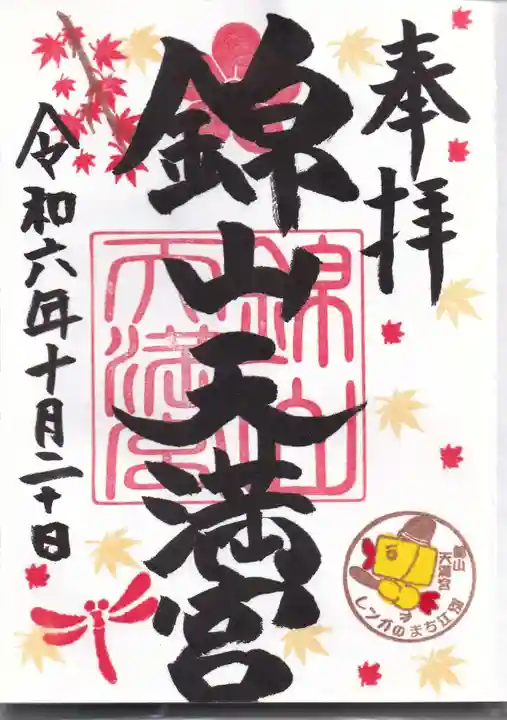 奉拝
錦山天満宮
錦山
天満宮
令和六年十月二十日
錦山
天満宮
レンガのまち江別